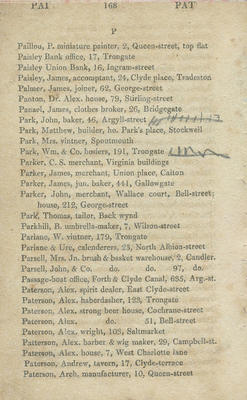 PAI 168 PAT
P
Paillou, P. miniature painter, 2, Queen-street, top flat
Paisley Bank office, 17, Trongate
Paisley Union Bank, 16, Ingram-street
Paisley, James, accomptant, 24, Clyde place, Tradeston
Palmer, James, joiner, 62, George-street
Panton, Dr. Alex. house, 79, Stirling-street
Panuel, James, clothes broker, 26, Bridgegate
Park, John, baker, 46, Argyll-street
Park, Matthew, builder, ho. Park's place, Stockwell
Park, Mrs. vintner, Spoutmouth
Park, Wm. & Co. hosiers, 191, Trongate
Parker, C. S. merchant, Virginia buildings
Parker, James, merchant, Union place, Calton
Parker, James, jun. baker, 441, Gallowgate
Parker, John, merchant, Wallace court, Bell-street;
house, 212, George-street
Park, Thomas, tailor, Back wynd
Parkhill, B. umbrella-maker, 7, Wilson-street
Pariano, W. vintner, 179, Trongate
Pariane & Ure, calenderers, 25, North Albion-street
Parsell, Mrs. Jn. brush & basket warehouse, 2, Candler.
Parsell, John, & Co. do. do. 97, do.
Passage-boat office, Forth & Clyde Canal, 685, Arg.-st.
Paterson, Alex. spirit dealer, East Clyde-street
Paterson, Alex. haberdasher, 123, Trongate
Paterson, Alex. strong beer house, Cochrane-street
Paterson, Alex. do. 51, Bell-street
Paterson, Alex. wright, 108, Saltmarket
Paterson, Alex. barber & wig maker, 29, Campbell-st.
Paterson, Alex. house, 7, West Charlotte lane
Paterson, Andrew, tavern, 17, Clyde-terrace
Paterson, Arch. manufacturer, 10, Queen-street